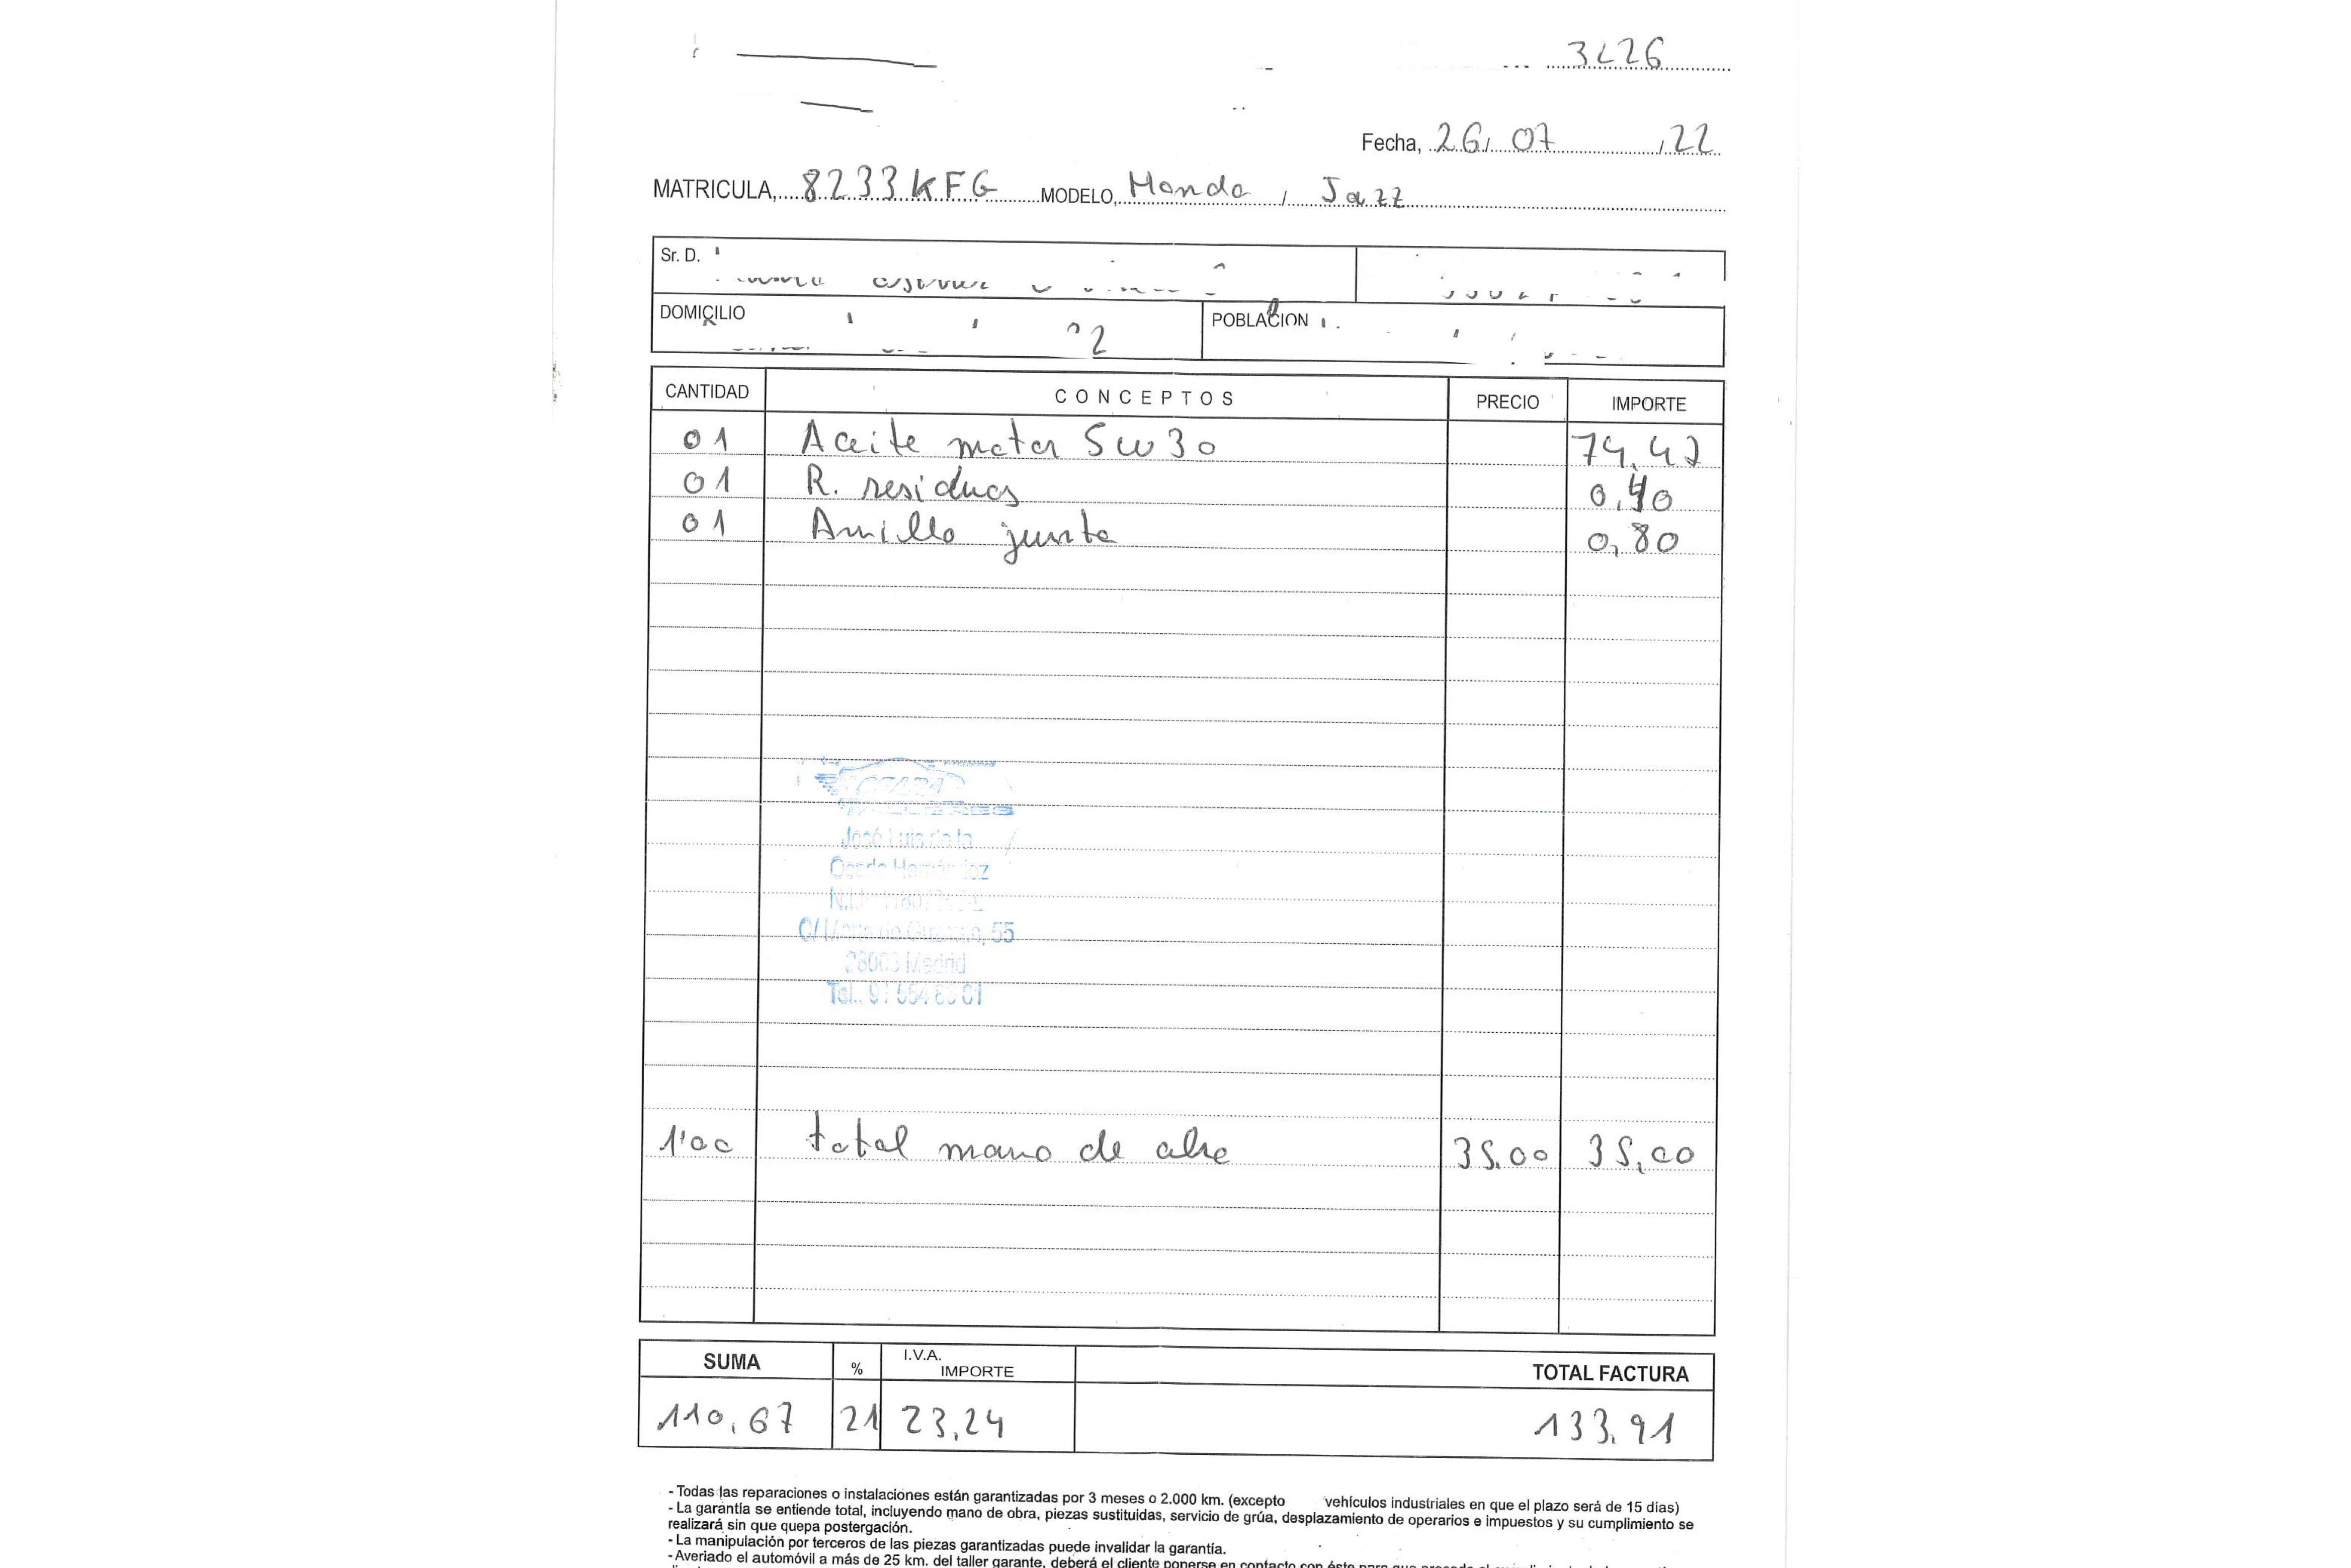 3226
Fecha, 26/ 07 /22
MATRICULA, 8233 KFG MODELO, Honda / Jazz
Sr. D.
DOMICILIO POBLACION
CANTIDAD CONCEPTOS PRECIO IMPORTE
01 Aceite motor 5w30 74,47
01 R. residuos 0,40
01 Anillo junta 0,80
José Luis de la
55
Madrid
Tel.
1'00 total mano de obra 35,00 35,00
SUMA % I.V.A. IMPORTE TOTAL FACTURA
110,67 21 23,24 133,91
- Todas las reparaciones o instalaciones están garantizadas por 3 meses o 2.000 km. (excepto vehículos industriales en que el plazo será de 15 días)
- La garantía se entiende total, incluyendo mano de obra, piezas sustituidas, servicio de grúa, desplazamiento de operarios e impuestos y su cumplimiento se
realizará sin que quepa postergación.
- La manipulación por terceros de las piezas garantizadas puede invalidar la garantía.
- Averiado el automóvil a más de 25 km. del taller garante, deberá el cliente ponerse en contacto con éste para que